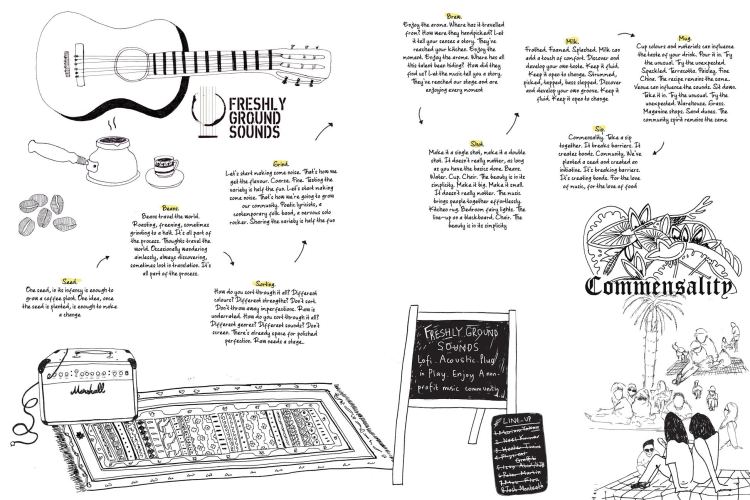 FRESHLY
GROUND
SOUNDS
Seed.
One seed, is its infancy is enough to
grow a coffee plant. One idea, once
the seed is planted, is enough to make
a change
Beans.
Beans travel the world.
Roasting, freezing, sometimes
grinding to a halt. It's all part of
the process. Thoughts travel the
world. Occasionally wandering
aimlessly, always discovering,
sometimes lost in translation. It's
all part of the process.
Sorting.
How do you sort through it all? Different
colours? Different strengths? Don't sort.
Don't throw away imperfections. Raw is
underrated. How do you sort through it all?
Different genres? Different sounds? Don't
screen. There's already space for polished
perfection. Raw needs a stage.
Grind.
Let's start making some noise. That's how we
get the flavour. Coarse. Fine. Testing the
variety is half the fun. Let's start making
some noise. That's how we're going to grow
our community. Poetic lyricists, a
contemporary folk band, a nervous solo
rocker. Sharing the variety is half the fun
Brew.
Enjoy the aroma. Where has it travelled
from? How were they handpicked? Let
it tell your senses a story. They've
reached your kitchen. Enjoy the
moment. Enjoy the aroma. Where has all
this talent been hiding? How did they
find us? Let the music tell you a story.
They've reached our stage and are
enjoying every moment
Shot.
Make it a single shot, make it a double
shot. It doesn't really matter, as long
as you have the basics done. Beans.
Water. Cup. Chair. The beauty is in its
simplicity. Make it big. Make it small.
It doesn't really matter. The music
brings people together effortlessly.
Kitchen rug. Bedroom fairy lights. The
line-up on a blackboard. Chair. The
beauty is in its simplicity
Milk.
Frothed. Foamed. Splashed. Milk can
add a touch of comfort. Discover and
develop your own taste. Keep it fluid.
Keep it open to change. Strummed,
picked, tapped, bass slapped. Discover
and develop your own groove. Keep it
fluid. Keep it open to change
Mug.
Cup colours and materials can influence
the taste of your drink. Pour it in. Try
the unusual. Try the unexpected.
Speckled. Terracotta. Paisley. Fine
China. The recipe remains the same.
Venue can influence the sounds. Sit down.
Take it in. Try the unusual. Try the
unexpected. Warehouse. Grass.
Magazine shops. Sand dunes. The
community spirit remains the same
Sip.
Commensality. Take a sip
together. It breaks barriers. It
creates bonds. Community. We've
planted a seed and created an
initiative. It's breaking barriers.
It's creating bonds. For the love
of music, for the love of food
Commensality
Marshall
FRESHLY GROUND
SOUNDS
Lofi. Acoustic. Plug
in Play. Enjoy A non-
profit music community
LINE-UP